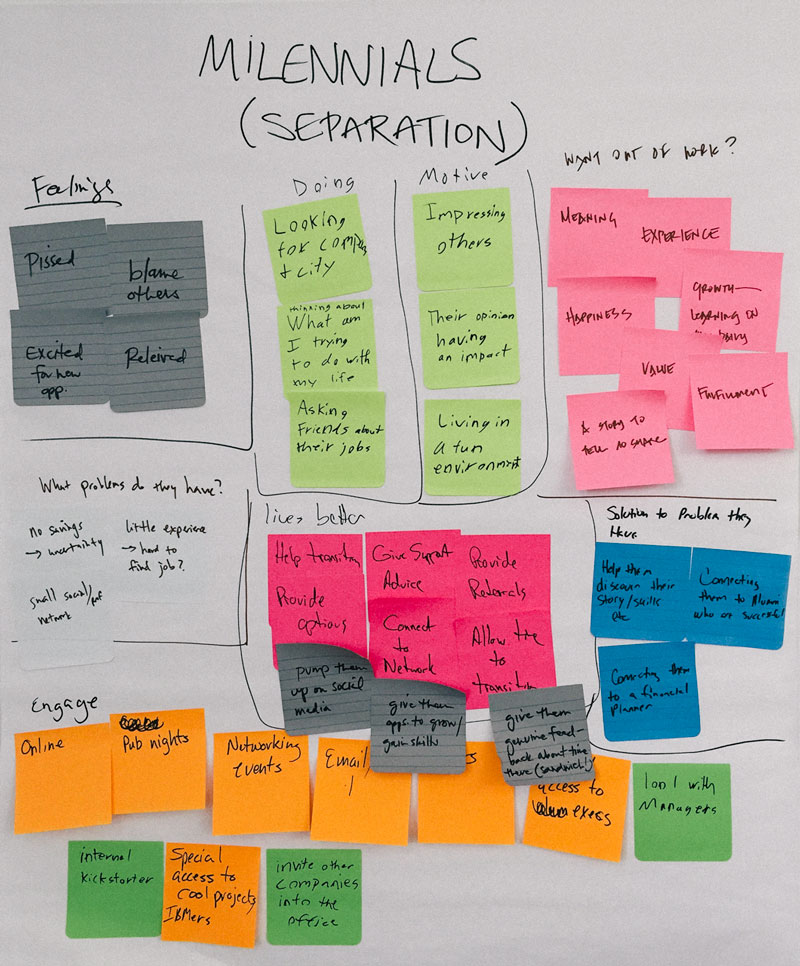 MILENNIALS
(SEPARATION)
Feelings
Pissed
blame
others
Excited
for new
opp.
Releived
Doing
Looking
for
+ city
thinking about
What am
I trying
to do with
my life
Asking
Friends about
their jobs
Motive
Impressing
others
Their opinion
having
an impact
Living in
a fun
environment
WANT OUT OF WORK?
MEANING
EXPERIENCE
HAPPINESS
GROWTH—
LEARNING ON
VALUE
FULFILLMENT
A STORY TO
TELL TO SHARE
What problems do they have?
no savings
→ uncertainty
little experience
→ hard to
find job?
small social/
network
lives better
Help transition
Give Support
Advice
Provide
Referrals
Provide
options
Connect
to
Network
Allow time
to
transition
pump them
up on social
media
give them
opps. to grow/
gain skills
give them
genuine feed-
back about time
there (sandwich!)
Solution to Problem they
Have
Help them
discover their
story/skills
etc
Connecting
them to Alumni
who are successful
Connecting them
to a financial
planner
Engage
Online
Pub nights
Networking
events
Email
access to
execs
1 on 1 with
Managers
internal
kickstarter
Special
access to
cool projects,
IBMers
invite other
companies
into the
office